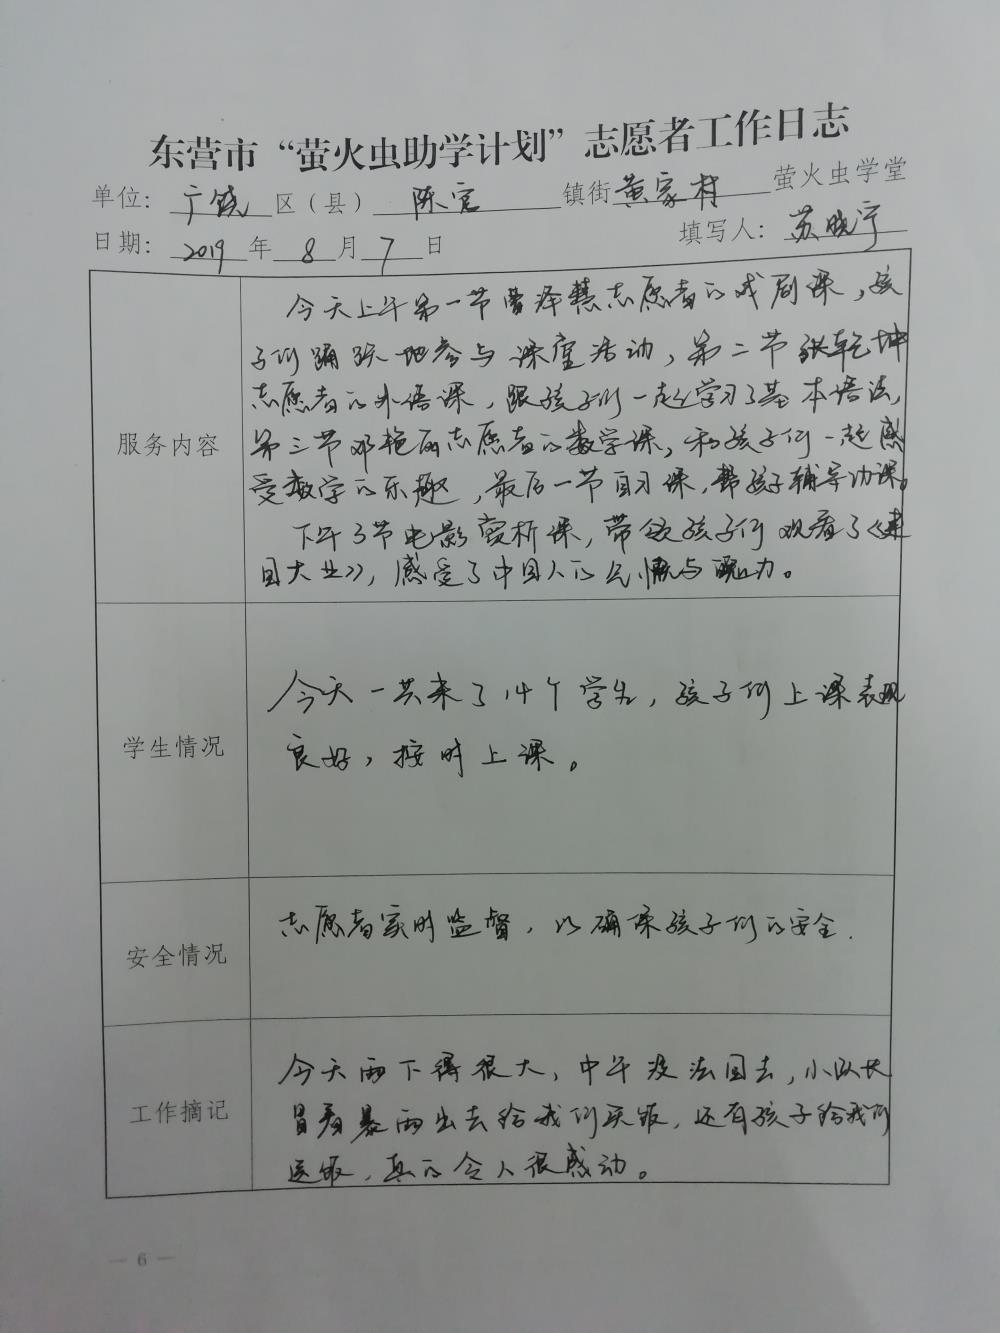 东营市“萤火虫助学计划”志愿者工作日志
单位：广饶区（县）陈官镇街黄家村萤火虫学堂
日期：2019年8月7日 填写人：苏晓宁
服务内容
今天上午第一节曹泽慧志愿者的戏剧课，孩
子们踊跃地参与课堂活动，第二节张乾坤
志愿者的外语课，跟孩子们一起学习了基本语法，
第三节邓艳丽志愿者的数学课，和孩子们一起感
受数学的乐趣，最后一节自习课，帮孩子辅导功课。
下午3节电影赏析课，带领孩子们观看了《建
国大业》，感受了中国人的 与 力。
学生情况
今天一共来了14个学生，孩子们上课表现
良好，按时上课。
安全情况
志愿者实时监督，以确保孩子们的安全.
工作摘记
今天雨下得很大，中午没法回去，小队长
冒着暴雨出去给我们买饭，还有孩子给我们
送饭，真的令人很感动。
— 6 —